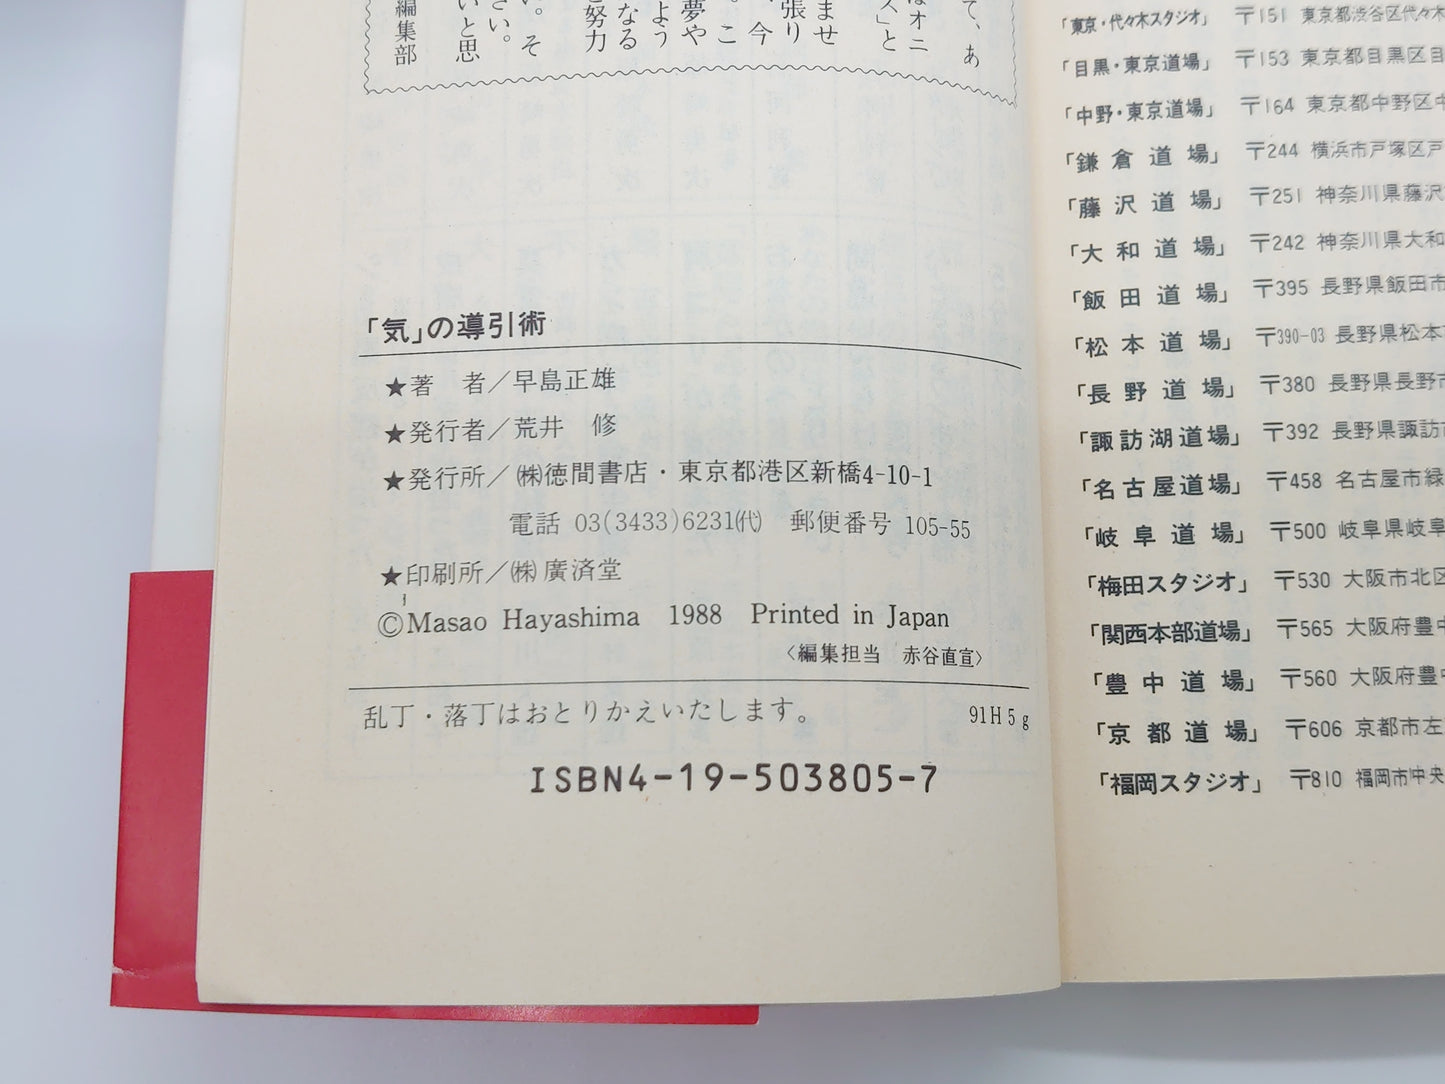 て、あ
はオニ
ス」と
ませ
張り
今
。こ
夢や
よう
なる
努力
い。そ
さい。
いと思
編集部
「気」の導引術
★著　者／早島正雄
★発行者／荒井　修
★発行所／㈱徳間書店・東京都港区新橋4-10-1
電話 03(3433)6231㈹　郵便番号 105-55
★印刷所／㈱廣済堂
©Masao Hayashima　1988　Printed in Japan
〈編集担当　赤谷直宣〉
乱丁・落丁はおとりかえいたします。
91H5g
ISBN4-19-503805-7
「東京・代々木スタジオ」　〒151 東京都渋谷区代々木
「目黒・東京道場」　〒153 東京都目黒区目
「中野・東京道場」　〒164 東京都中野区中
「鎌倉道場」　〒244 横浜市戸塚区戸
「藤沢道場」　〒251 神奈川県藤沢
「大和道場」　〒242 神奈川県大和
「飯田道場」　〒395 長野県飯田市
「松本道場」　〒390-03 長野県松本
「長野道場」　〒380 長野県長野市
「諏訪湖道場」　〒392 長野県諏訪市
「名古屋道場」　〒458 名古屋市緑
「岐阜道場」　〒500 岐阜県岐阜
「梅田スタジオ」　〒530 大阪市北区
「関西本部道場」　〒565 大阪府豊中
「豊中道場」　〒560 大阪府豊中
「京都道場」　〒606 京都市左
「福岡スタジオ」　〒810 福岡市中央